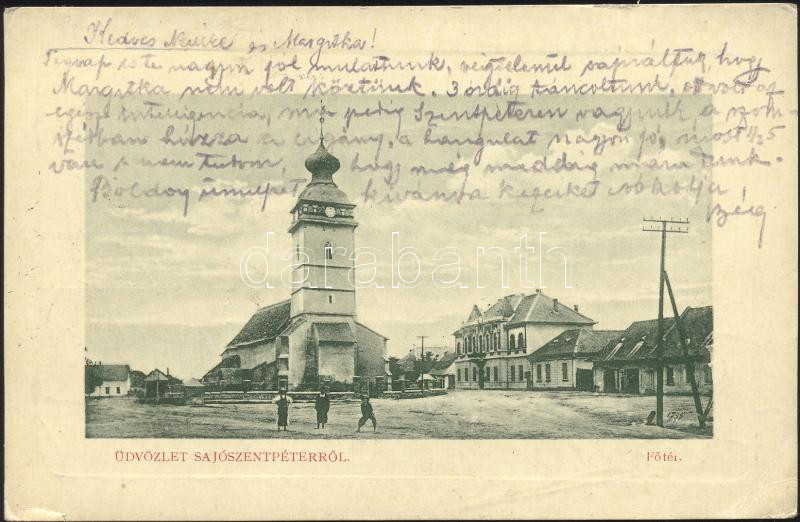 Kedves Nencike és Margitka!
Tegnap este nagyon jól mulattunk, végtelenül sajnáltuk, hogy
Margitka nem volt köztünk. 3 óráig táncoltunk, ott volt az
egész intelligencia, ma pedig Szentpéteren vagyunk, a szom-
szédban húzza a cigány, a hangulat nagyon jó, most 1/2 5
van s nem tudom, hogy még meddig maradunk.
Boldog ünnepet kivánva kezeiket csókolja
darabanth
1755
ÜDVÖZLET SAJÓSZENTPÉTERRŐL.
Főtér.